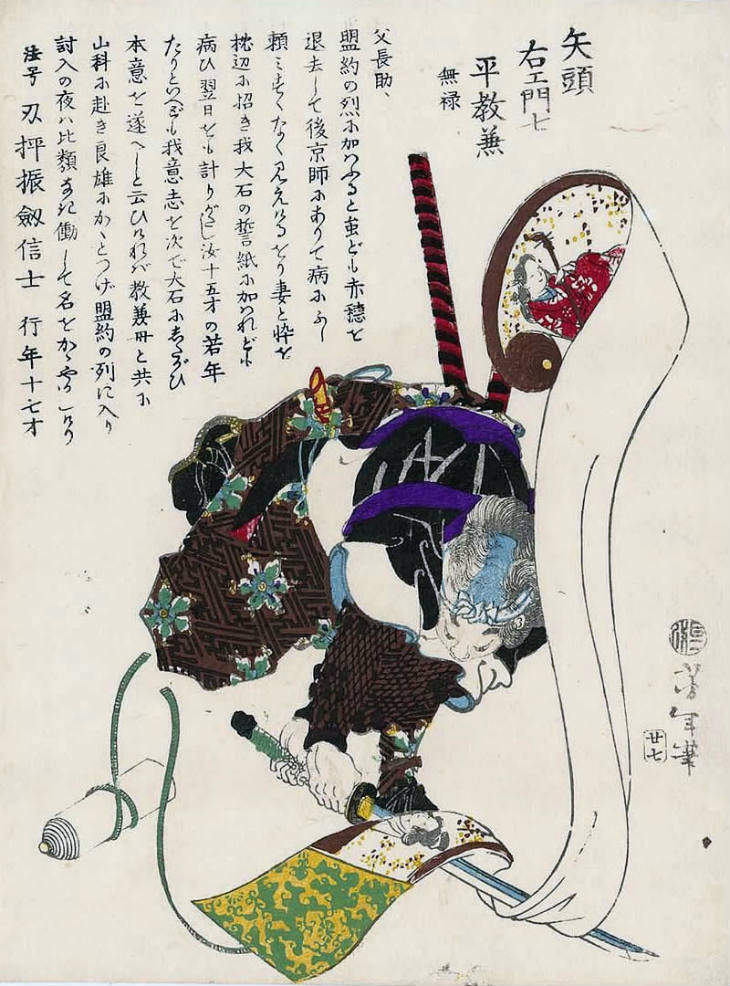 矢頭
右エ門七
平教兼
無禄
父長助、
盟約の烈に加はると虽ども赤穂を
退去して後京師にありて病にふし
頼ミすくなく見えけるをり妻と忰を
枕辺に招き我大石の誓紙に加はれども
病ひ翌日をも計りがたし汝十五才の若年
たりといへども我意志を次で大石にしたがひ
本意を遂べしと云ひければ教兼母と共に
山科に赴き良雄にかくとつげ盟約の列に入り
討入の夜ハ比類なき働して名をかゝやかしけり
法号 刃抨振劔信士 行年十七才
芳年筆
廿七